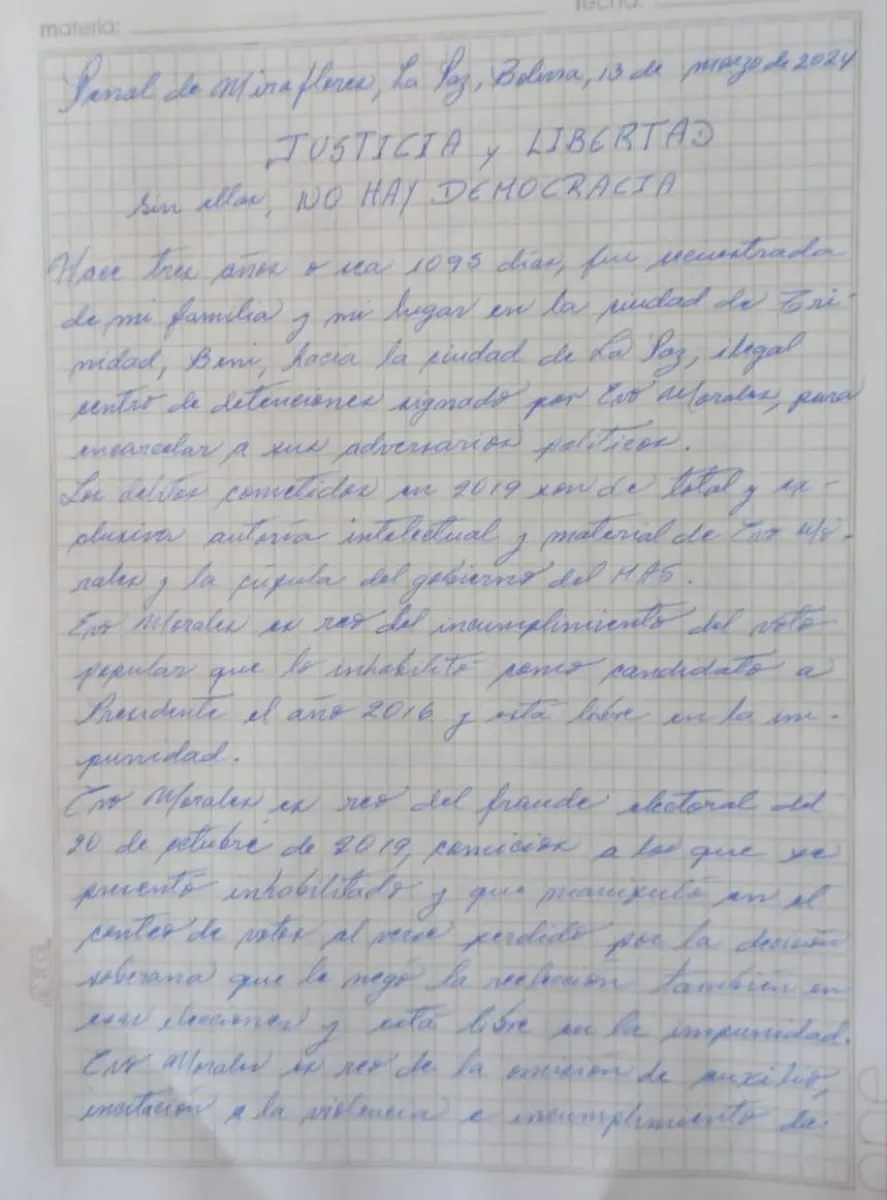 materia:
fecha:
Penal de Miraflores, La Paz, Bolivia, 13 de marzo de 2024
JUSTICIA y LIBERTAD
sin ellas, NO HAY DEMOCRACIA
Hace tres años o sea 1095 días, fui secuestrada
de mi familia y mi lugar en la ciudad de Tri-
nidad, Beni, hacia la ciudad de La Paz, ilegal
centro de detenciones signado por Evo Morales, para
encarcelar a sus adversarios políticos.
Los delitos cometidos en 2019 son de total y ex-
clusiva autoría intelectual y material de Evo Mo-
rales y la cúpula del gobierno del MAS.
Evo Morales es reo del incumplimiento del voto
popular que lo inhabilitó como candidato a
Presidente el año 2016 y está libre en la im-
punidad.
Evo Morales es reo del fraude electoral del
20 de octubre de 2019, comicios a los que se
presentó inhabilitado y que manipuló en el
conteo de votos al verse perdido por la decisión
soberana que le negó la reelección también en
esas elecciones y está libre en la impunidad.
Evo Morales es reo de la omisión de auxilio,
incitación a la violencia e incumplimiento de